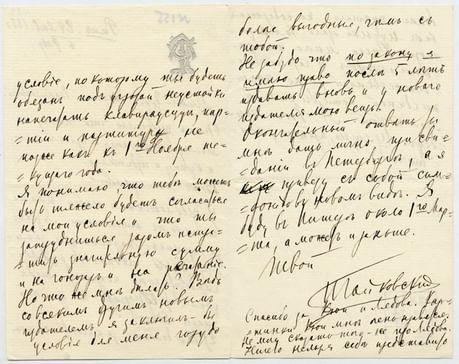 условіе, по которому ты будешь
обязан подъ угрозой неустойки
напечатать клавираусцуг, пар-
тіи и партитуру не
позже какъ къ 1го Ноября те-
кущаго года.
Я понимаю, что тебѣ можетъ
быть тяжело будетъ согласиться
на мои условія и что ты
затруднишься разомъ истра-
тить значительную сумму
и на гонораръ и на
Но что же мнѣ дѣлать? Вѣдь
совсѣмъ другимъ новымъ
издателемъ я заключилъ бы
условіе для меня гораздо
№ 155
болѣе выгодные, чѣмъ съ
тобой.
Не забудь что по закону я
имѣю право послѣ 5 лѣтъ
издавать вновь и у новаго
издателя мою вещь!
Окончательный отвѣтъ ты
мнѣ дашь лично, при сви-
даніи въ Петербургѣ, а я
привезу съ собой сим-
фонію въ новомъ видѣ. Я
буду въ Питерѣ около 1го Мар-
та, а можетъ и раньше.
Твой
П Чайковскій
Спасибо за
мнѣ очень нравятся.
Не могу сказать того-же про Лядова.